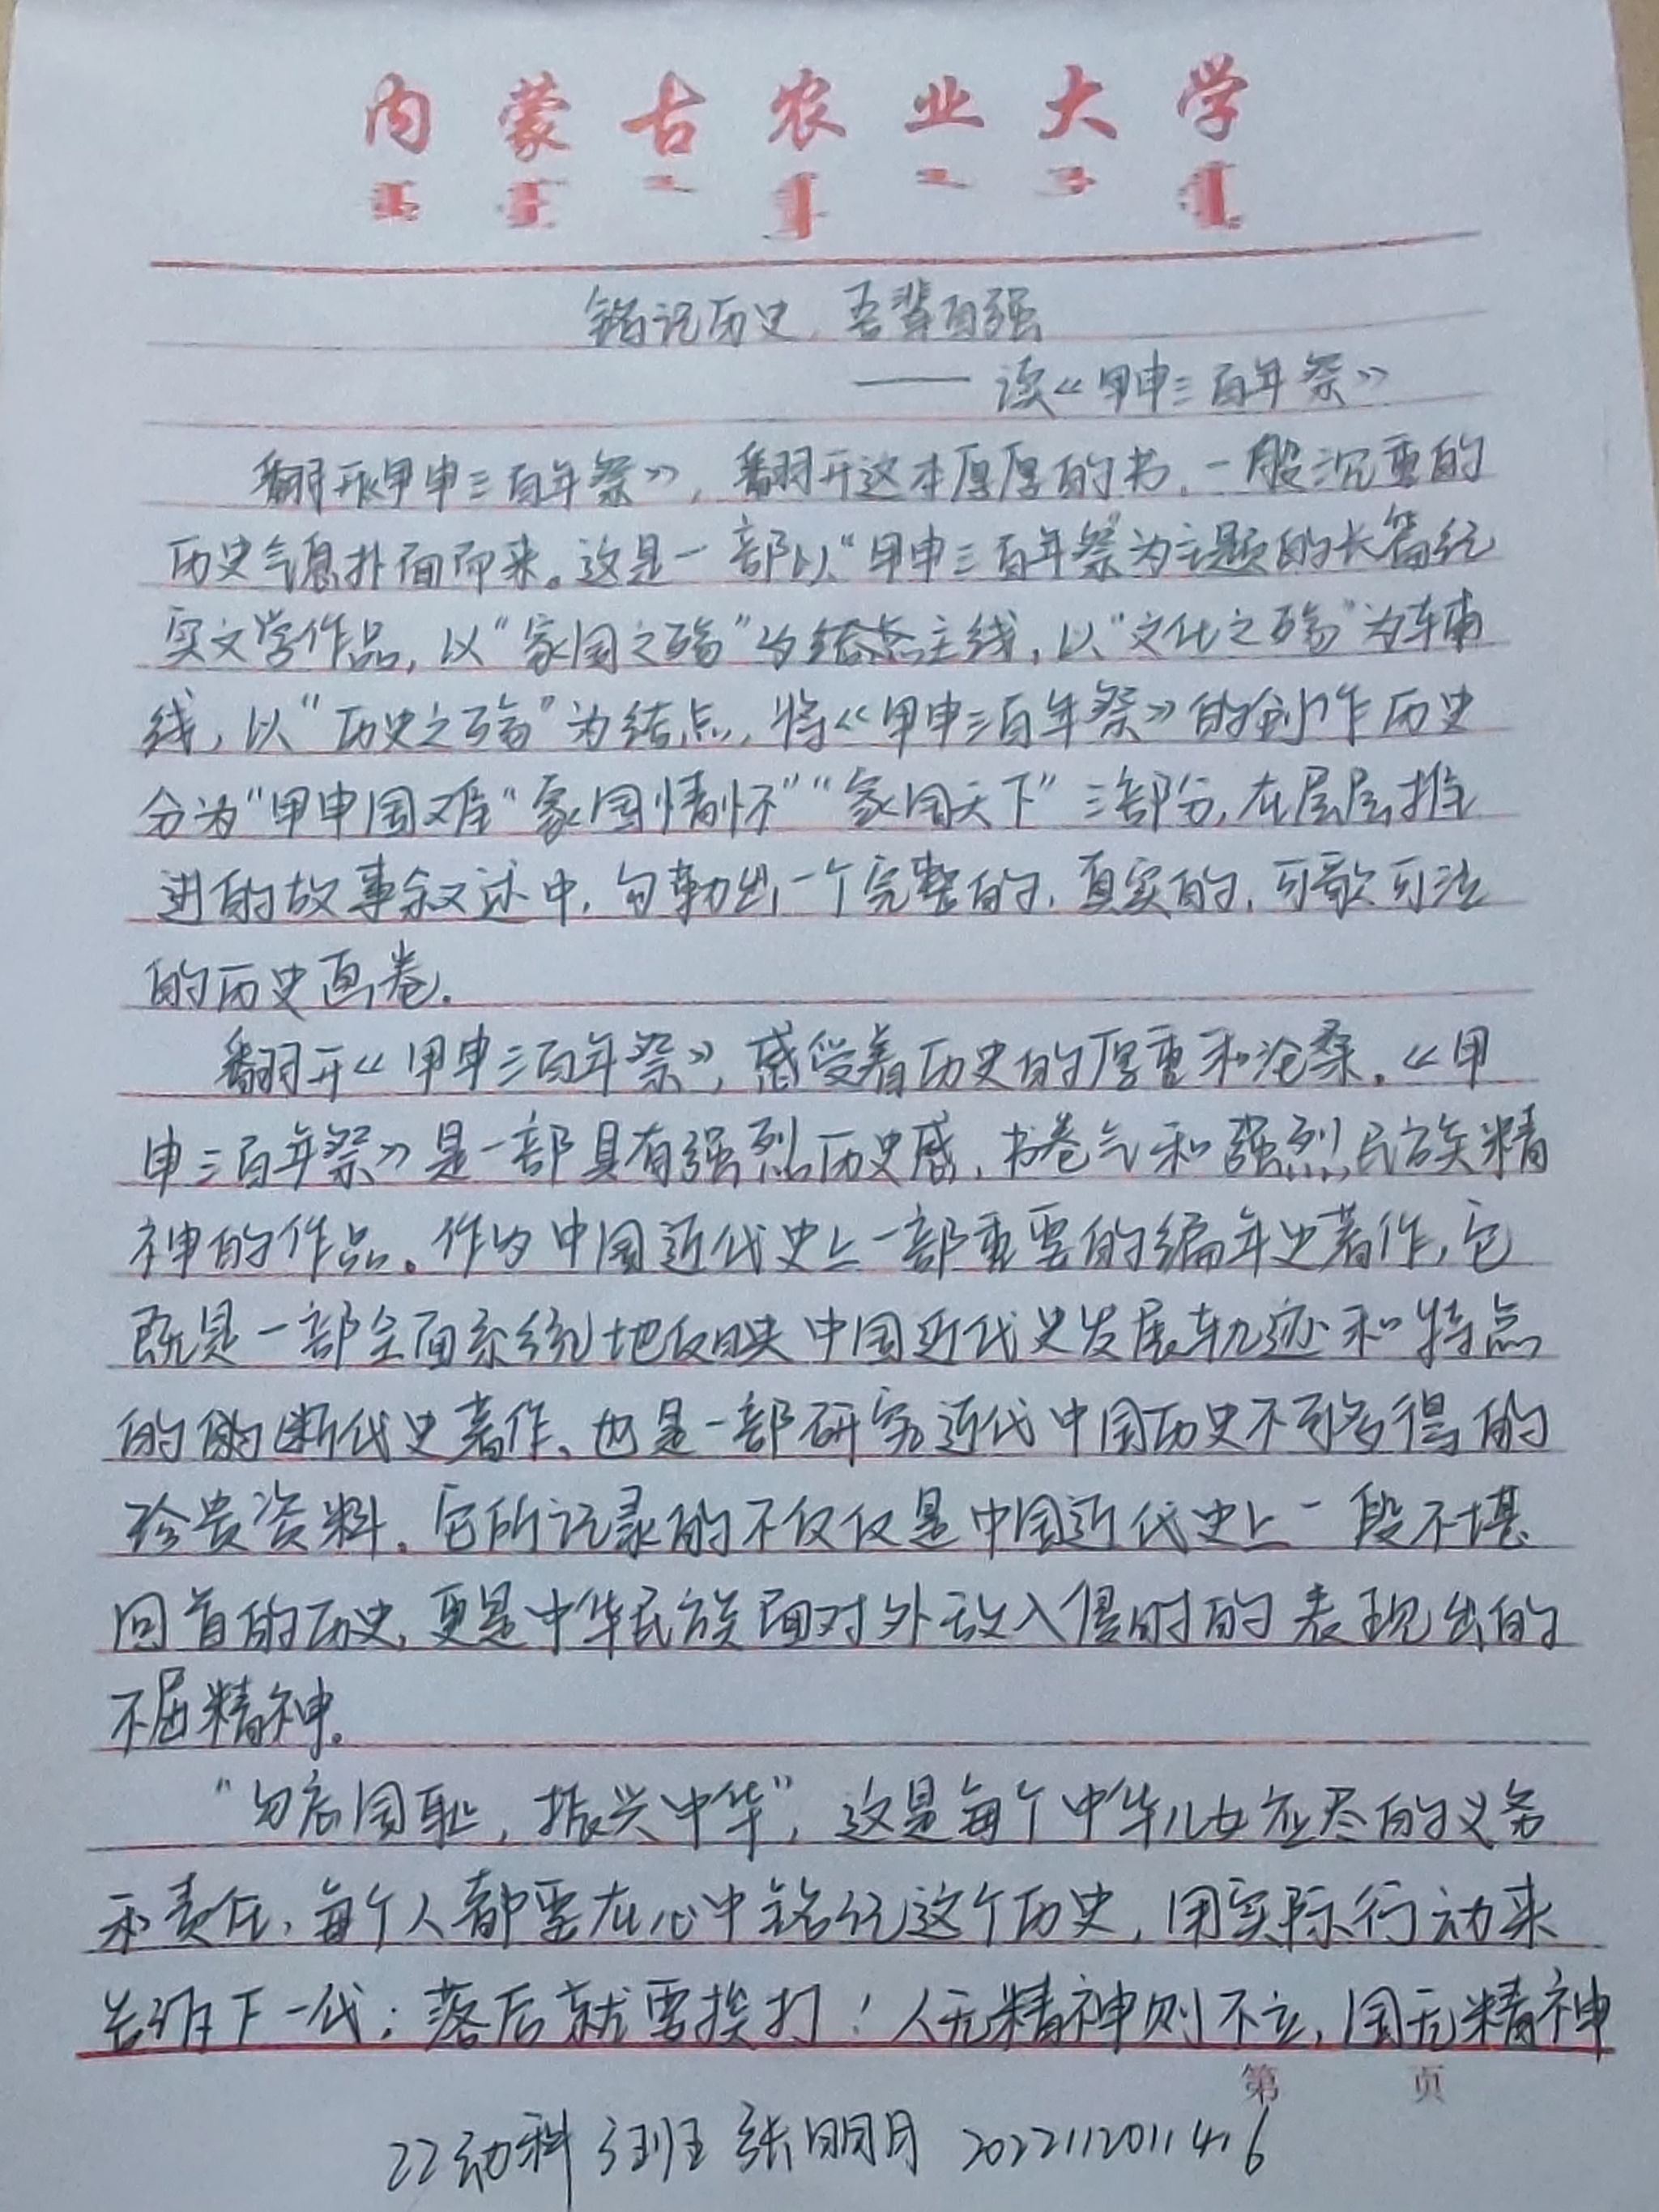 内蒙古农业大学
铭记历史,吾辈自强
—— 读《甲申三百年祭》
翻开《甲申三百年祭》,翻开这本厚厚的书,一股沉重的
历史气息扑面而来。这是一部以“甲申三百年祭”为主题的长篇纪
实文学作品,以“家国之殇”为主线,以“文化之殇”为辅
线,以“历史之殇”为结点,将《甲申三百年祭》的创作历史
分为“甲申国难”“家国情怀”“家国天下”三部分,在层层推
进的故事叙述中,勾勒出一个完整的,真实的,可歌可泣
的历史画卷.
翻开《甲申三百年祭》,感受着历史的厚重和沧桑.《甲
申三百年祭》是一部具有强烈历史感,书卷气和强烈民族精
神的作品。作为中国近代史上一部重要的编年史著作,它
既是一部全面系统地反映中国近代史发展轨迹和特点
的的断代史著作、也是一部研究近代中国历史不可多得的
珍贵资料.它所记录的不仅仅是中国近代史上一段不堪
回首的历史,更是中华民族面对外敌入侵时的表现出的
不屈精神。
“勿忘国耻,振兴中华”,这是每个中华儿女应尽的义务
和责任,每个人都要在心中铭记这个历史,用实际行动来
告诉下一代:落后就要挨打!人无精神则不立,国无精神
第 页
22动科 班 张明月